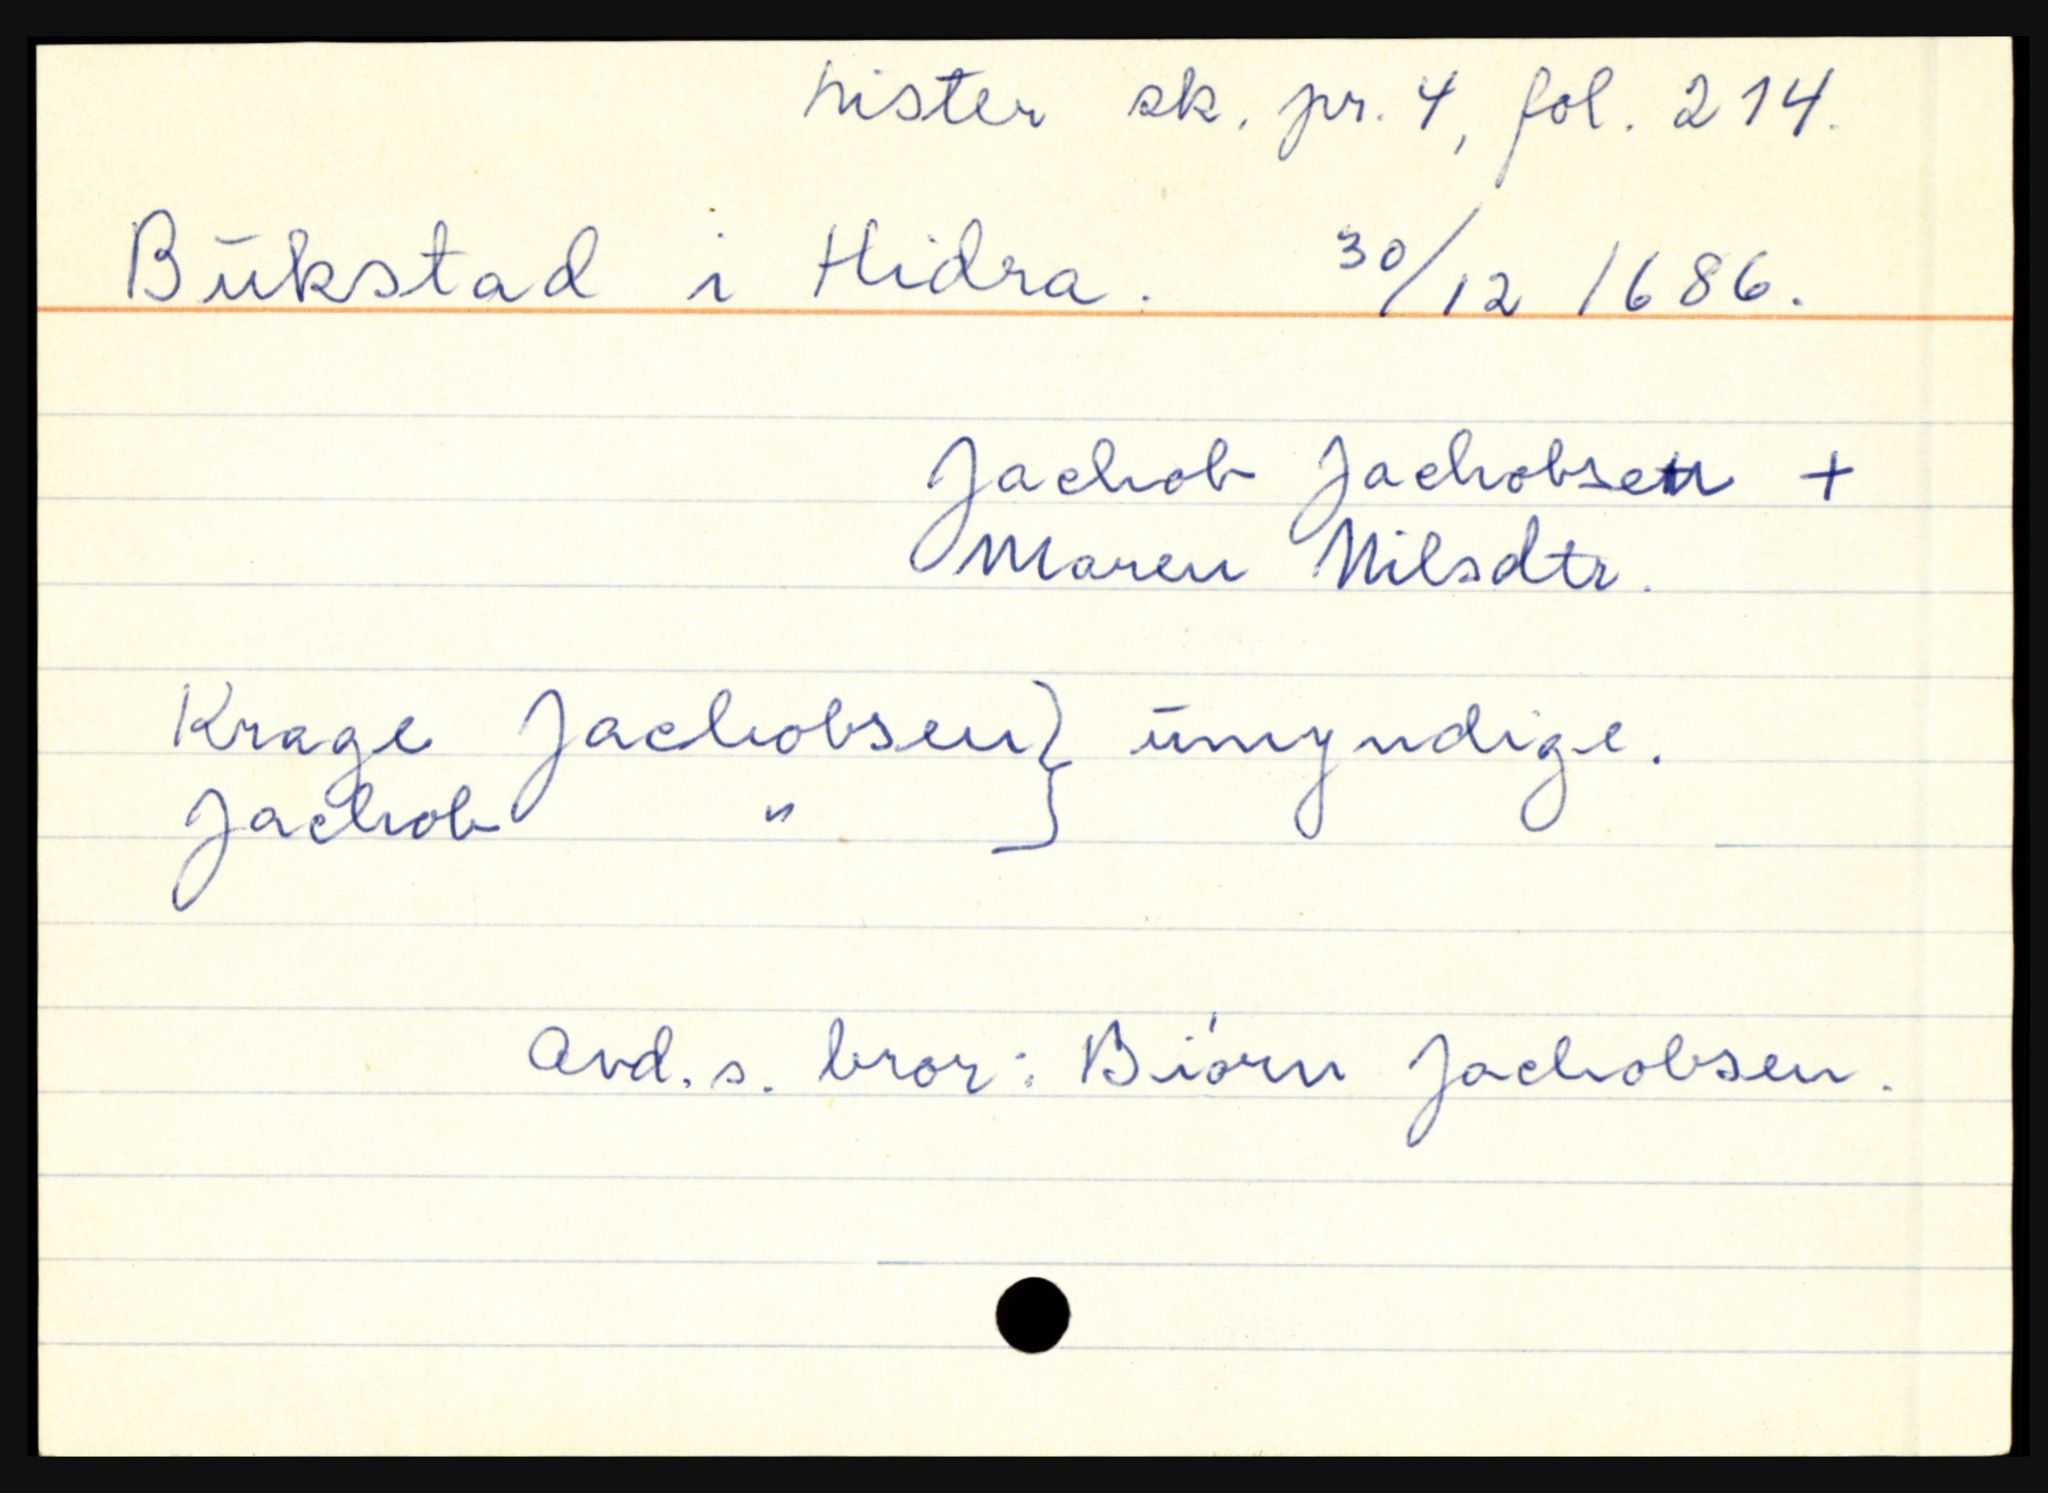 Lister sk. pr. 4, fol. 214.
Būkstad i Hidra. 30/12 1686.
Jachob Jachobsen +
Maren Nilsdtr.
Krage Jachobsen } ūmyndige.
Jachob " }
Avd. s. bror: Biørn Jachobsen.